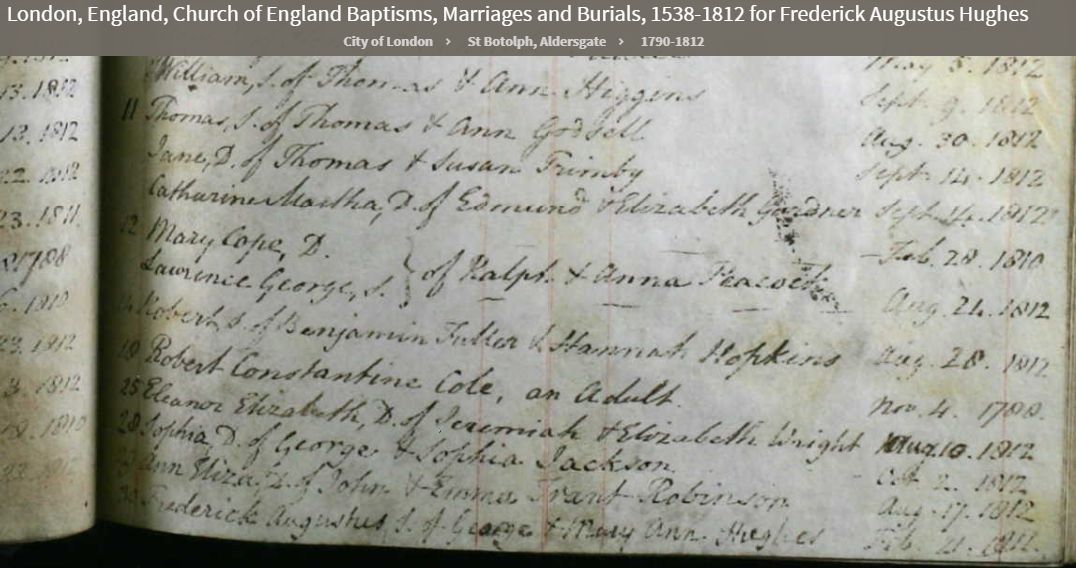 London, England, Church of England Baptisms, Marriages and Burials, 1538-1812 for Frederick Augustus Hughes
City of London > St Botolph, Aldersgate > 1790-1812
William, S. of Thomas & Ann Higgins Sept. 9. 1812
13. 1812
11 Thomas, S. of Thomas & Ann Godsell Aug. 30. 1812
13. 1812
Jane, D. of Thomas & Susan Trimby Sept. 14. 1812
22. 1812
Catharine Martha, D. of Edmund & Elizabeth Gardner Sept. 14. 1812
23. 1811.
12 Mary Cope, D. Feb. 28. 1810
Lawrence George, S. } of Ralph & Anna Peacock Aug. 21. 1812
1788
Robert, S. of Benjamin Fuller & Hannah Hopkins Aug. 28. 1812
1810
18 Robert Constantine Cole, an Adult. Nov. 4. 1788.
1812
25 Eleanor Elizabeth, D. of Jeremiah & Elizabeth Wright Aug. 10. 1812
3. 1812
28 Sophia D. of George & Sophia Jackson Oct. 2. 1812
1810
Ann Eliza, D. of John & Emma Grant Robinson Aug. 17. 1812
Frederick Augustus, S. of George & Mary Ann Hughes Feb.